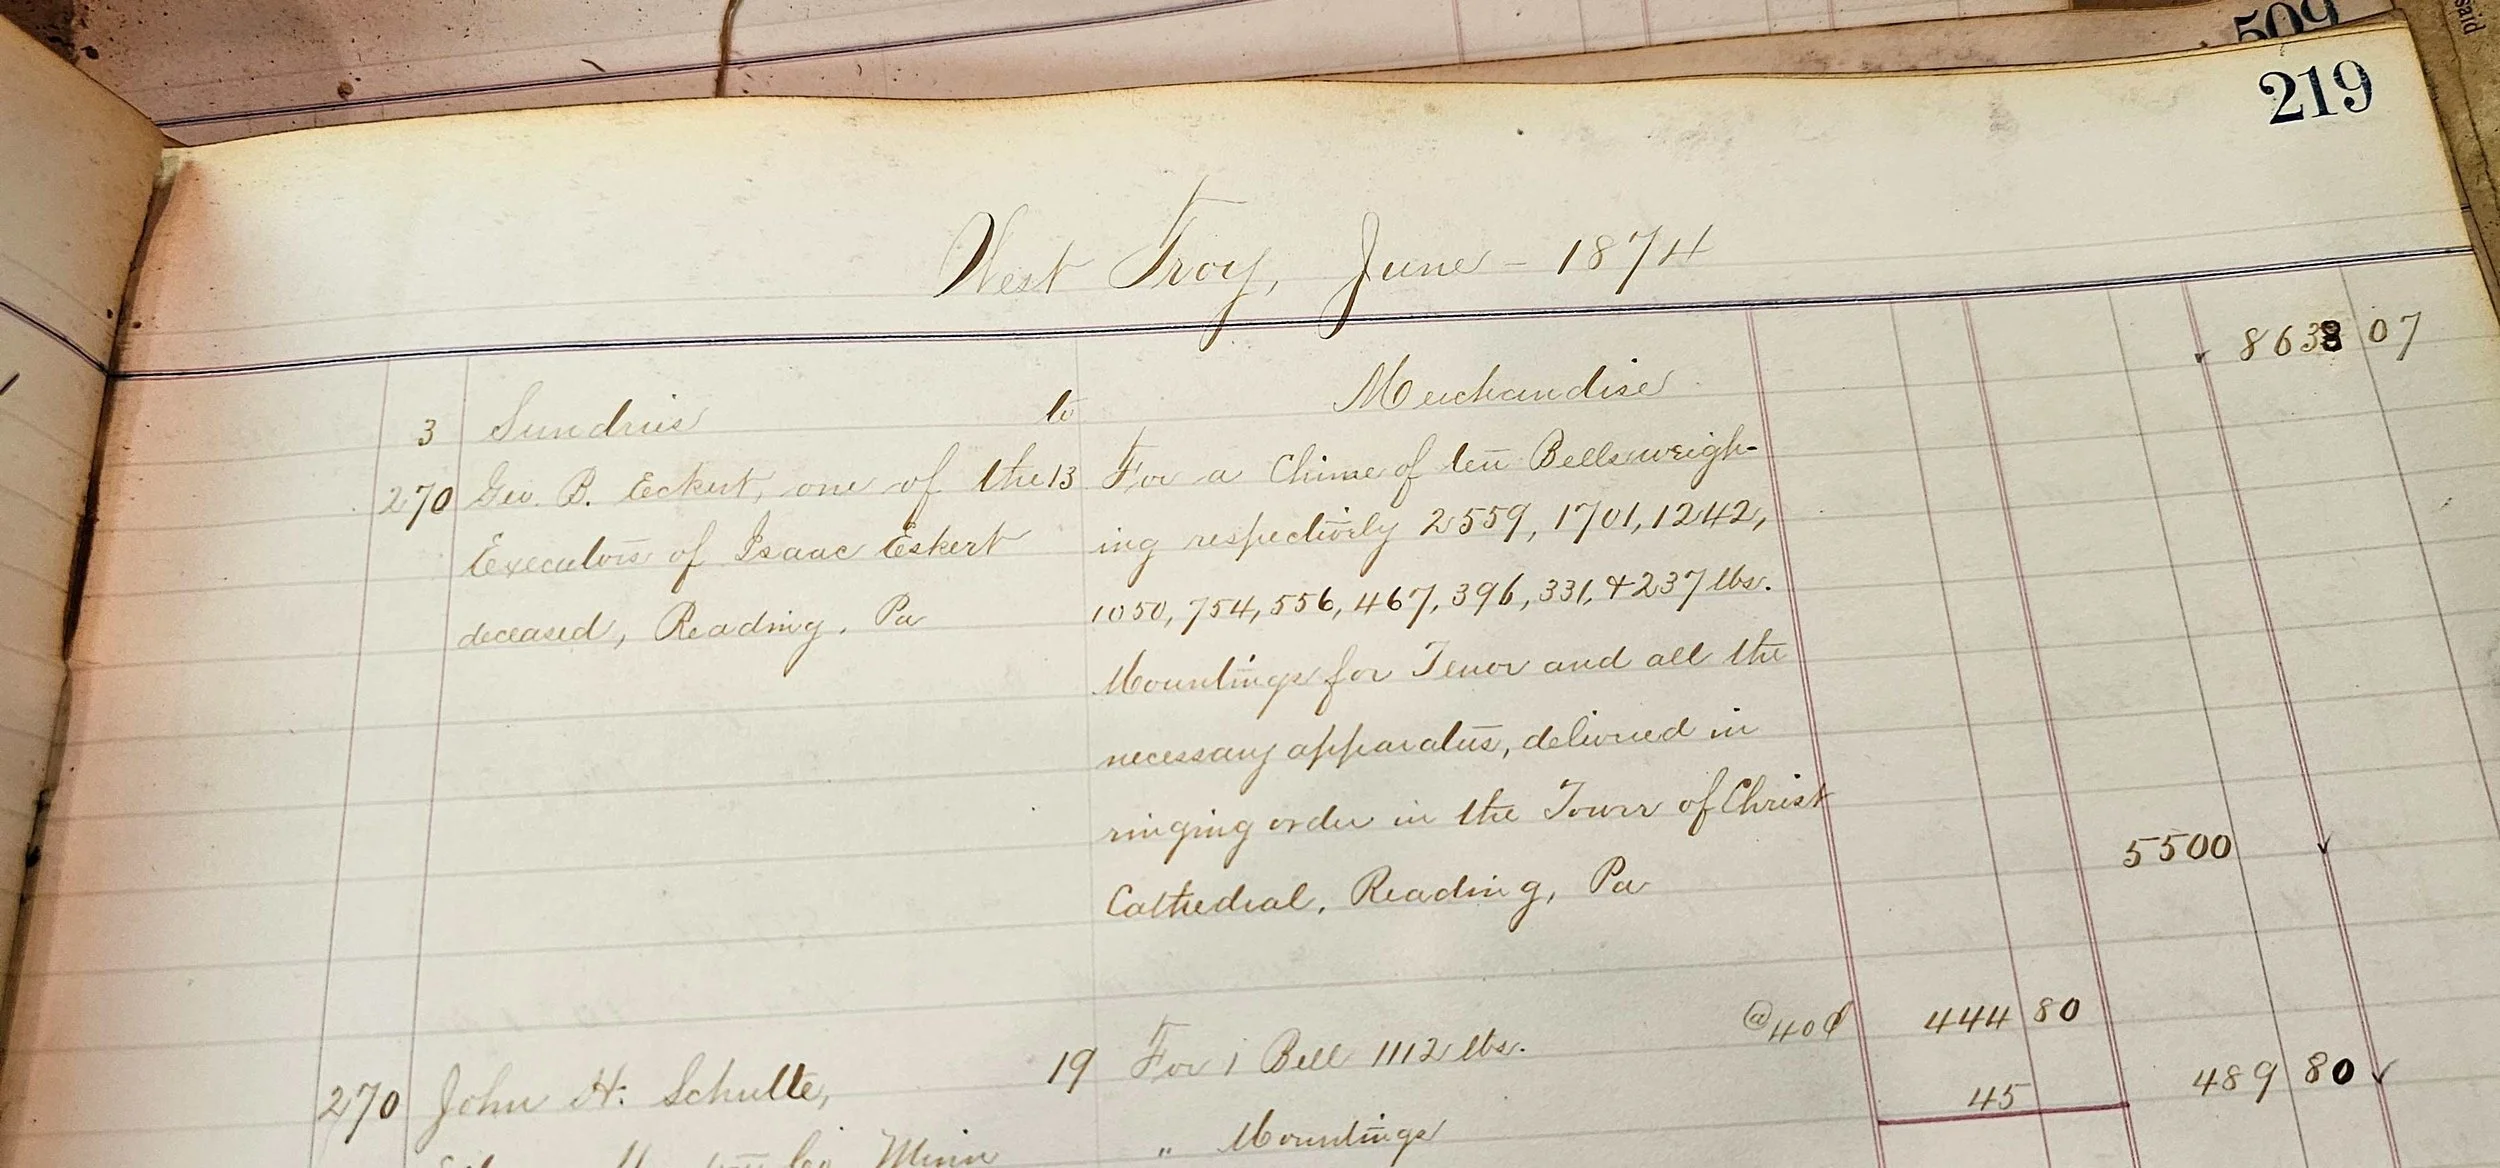 said
509
219
West Troy, June - 1874
8638 07
3 Sundries to Merchandise
270 Geo. B. Eckert, one of the 13 For a Chime of ten Bells weigh-
Executors of Isaac Eckert ing respectively 2559, 1701, 1242,
deceased, Reading, Pa 1050, 754, 556, 467, 396, 331, & 237 lbs.
Mountings for Tenor and all the
necessary apparatus, delivered in
ringing order in the Tower of Christ
Cathedral, Reading, Pa 5500
270 John H. Schulte, 19 For 1 Bell 1112 lbs. @ 40¢ 444 80
Co, Minn " Mountings 45 489 80